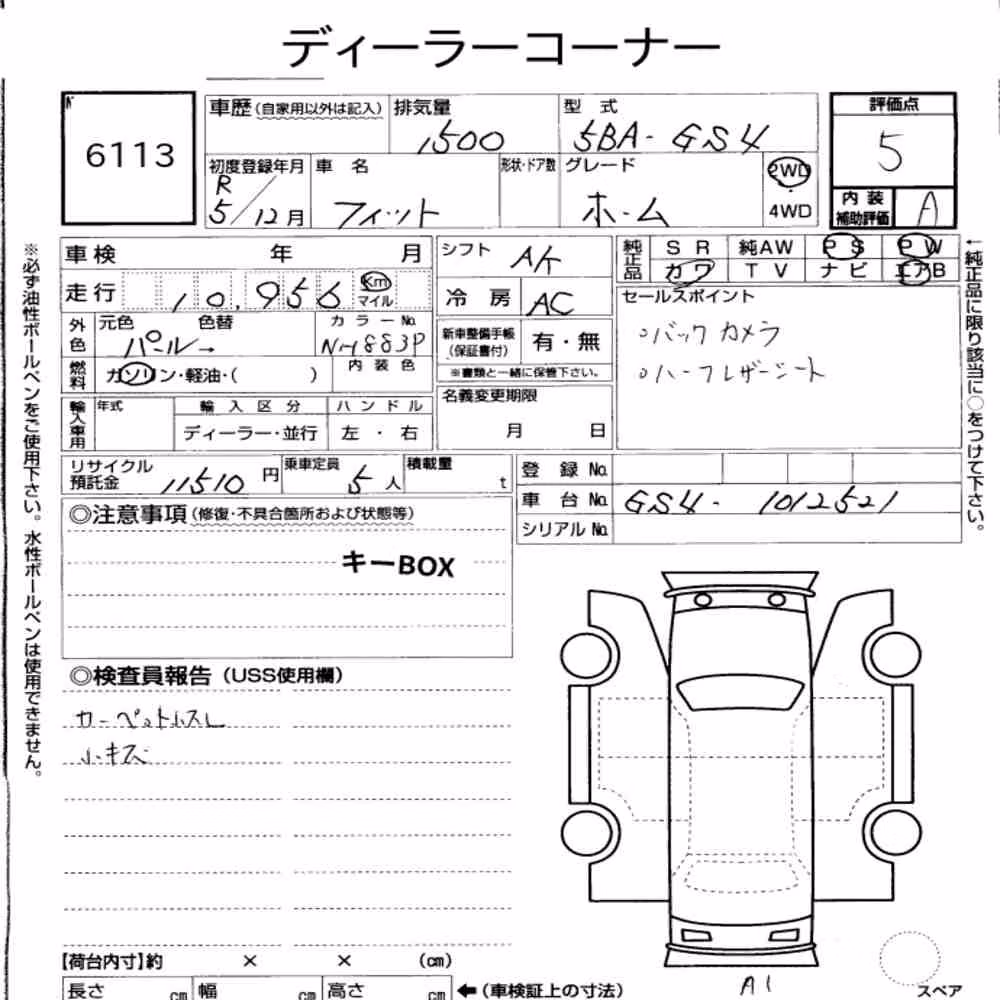 ディーラーコーナー
6113
車歴 (自家用以外は記入)
排気量
1500
型 式
5BA-GS4
評価点
5
初度登録年月
R
5/12月
車 名
フィット
形状・ドア数
グレード
ホーム
2WD
・
4WD
内 装
補助評価
A
車検 年 月
走行 10,956 Km
マイル
シフト AT
冷 房 AC
純正品
SR 純AW PS PW
カワ TV ナビ エアB
外色
元色 色替
パール→
カラーNo.
NH883P
新車整備手帳
(保証書付)
有・無
※書類と一緒に保管下さい。
セールスポイント
○バックカメラ
○ハーフレザーシート
燃料
ガソリン・軽油・( )
内装色
輸入車用
年式
輸入区分
ディーラー・並行
ハンドル
左・右
名義変更期限
月 日
リサイクル
預託金
11510 円
乗車定員
5 人
積載量
t
登 録 No.
車 台 No. GS4-1012521
シリアル No.
◎注意事項 (修復・不具合箇所および状態等)
キーBOX
◎検査員報告 (USS使用欄)
小キズ
【荷台内寸】約 × × (cm)
長さ cm 幅 cm 高さ cm ←(車検証上の寸法)
A1
スペア
※必ず油性ボールペンをご使用下さい。水性ボールペンは使用できません。
←純正品に限り該当に○をつけて下さい。